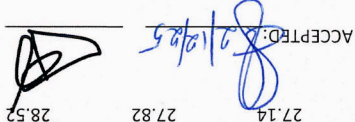 27.14 27.82 28.52
ACCEPTED: 2/12/25